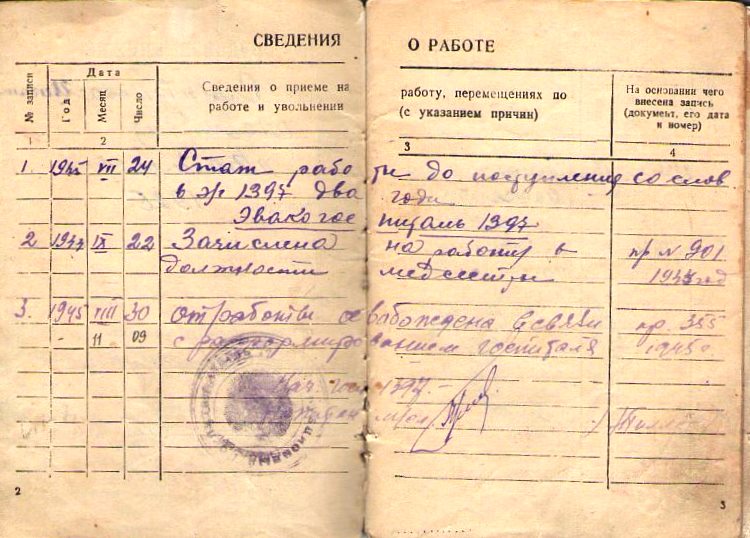 СВЕДЕНИЯ О РАБОТЕ
№ записи
Дата
Год
Месяц
Число
Сведения о приеме на работу, перемещениях по
работе и увольнении (с указанием причин)
На основании чего
внесена запись
(документ, его дата
и номер)
1 2 3 4
1. 1945 VII 24 Стаж работы до поступления со слов
в эг 1397 два года
Эвакогоспиталь 1397
2 IX 22 Зачислена на работу в пр N 901
должности медсестры год
3. 1945 VIII 30 от работы освабождена в связи пр. 355
- 11 09 с расформированием госпиталя 1945
Нач. гос 1397.-
2
3